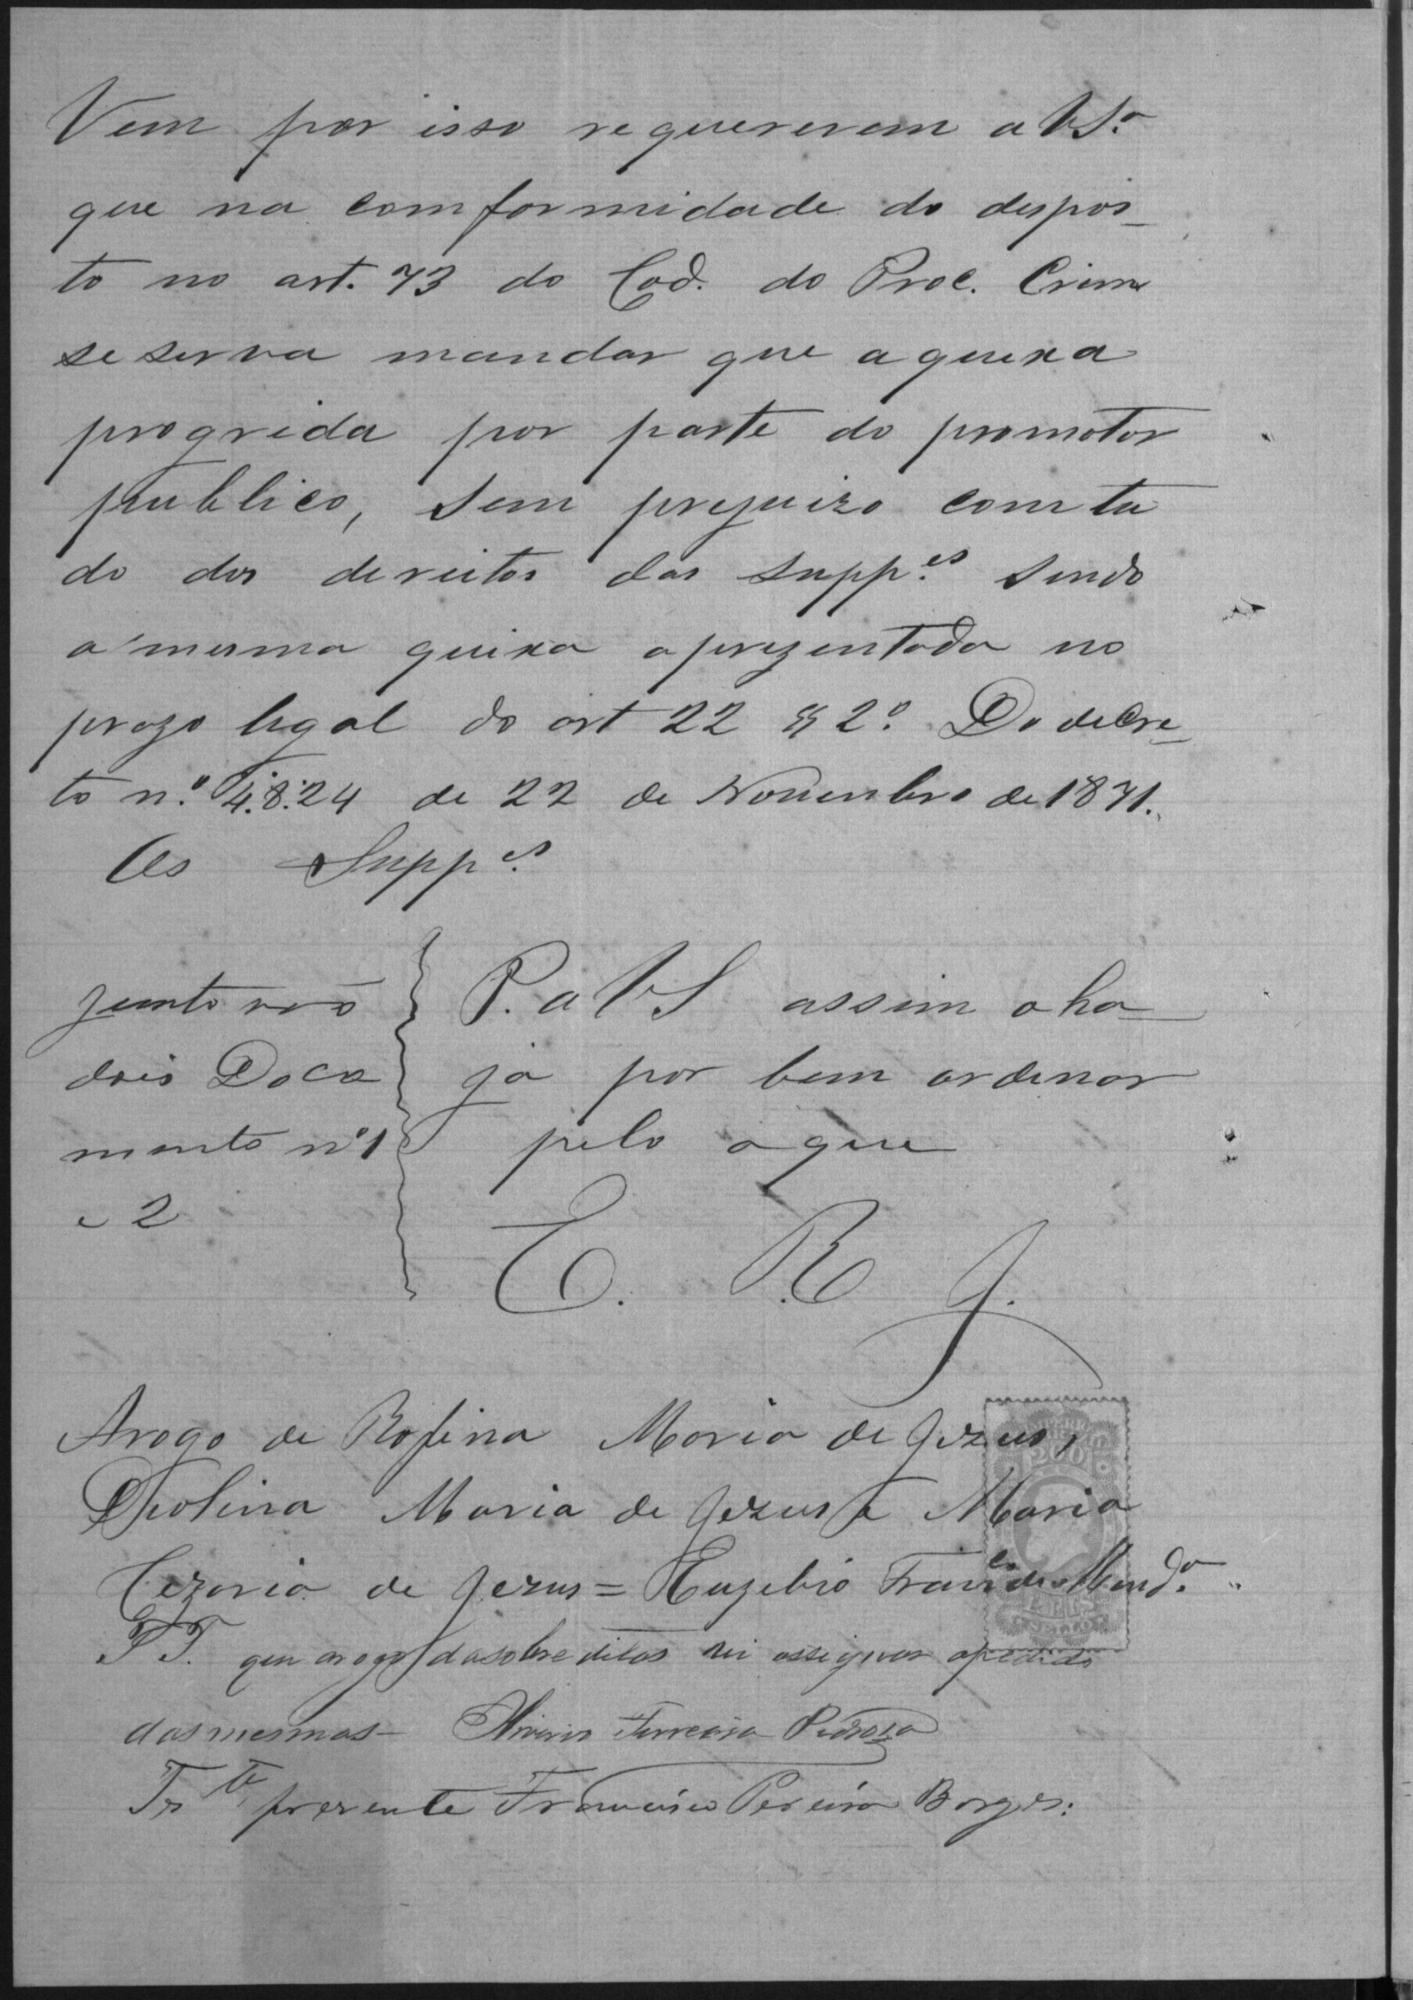 Vem por isso requererem a VSª
que na comformidade do dispos_
to no art. 73 do Cod. do Proc. Crime
se serva mandar que a queixa
progrida por parte do promotor
publico, sem prejuizo comtu
do dos dereitos das supp.es sendo
a mesma queixa aprezentada no
prazo legal do art 22 § 2º. Do decre_
to n.º 4.824 de 22 de Novembro de 1871.
As Supp.es
Junto vaõ
dois Docu
mento nº 1
e 2
P. a VS assim o ha_
ja por bem ordenar
pelo o que
E. R. J.
Arogo de Rofina Maria de Jezus,
Maria de Jezus e Maria
Cezaria de Jezus = Euzebio Fran.co de Mend.ª
TT. que arogo dasobreditas vi assignar apedido
dasmesmas _ Ferreira Pedroza
Tes.te prezente Francisco Pereira Borges.
200